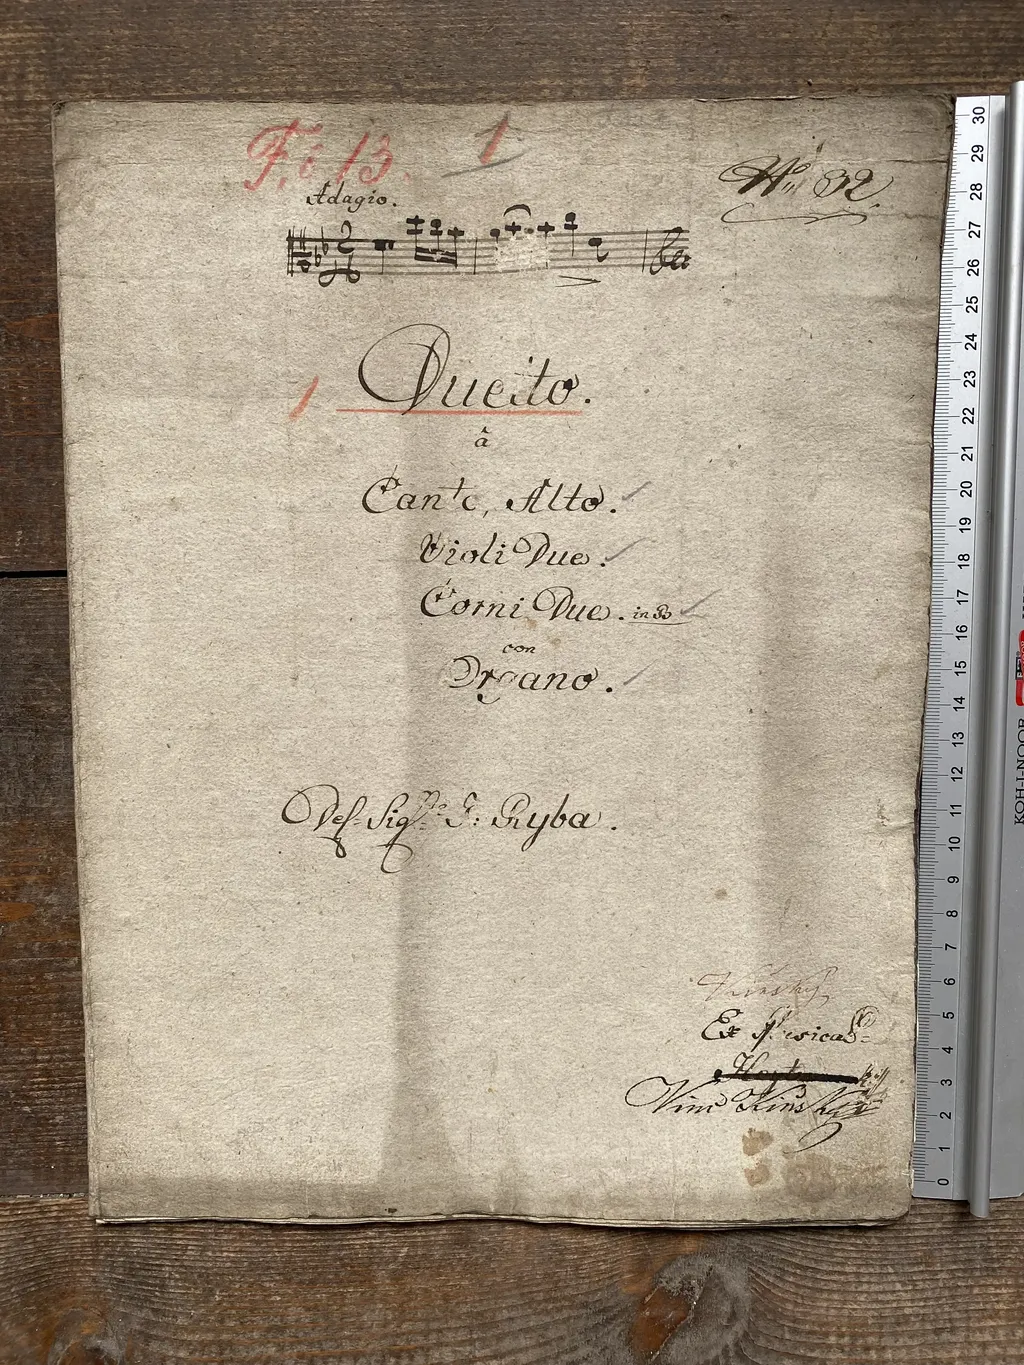 F. č 13. 1
No 32.
Adagio.
1 Duetto.
â
Canto, Alto.
Violi Due.
Corni Due. in B
con
Organo.
Del Sig.re J: Ryba.
Kinsky
Ex Musicali:
Vinc Kinsky
30
29
28
27
26
25
24
23
22
21
20
19
18
17
16
15
14
13
12
11
10
9
8
7
6
5
4
3
2
1
0
KOH-I-NOOR